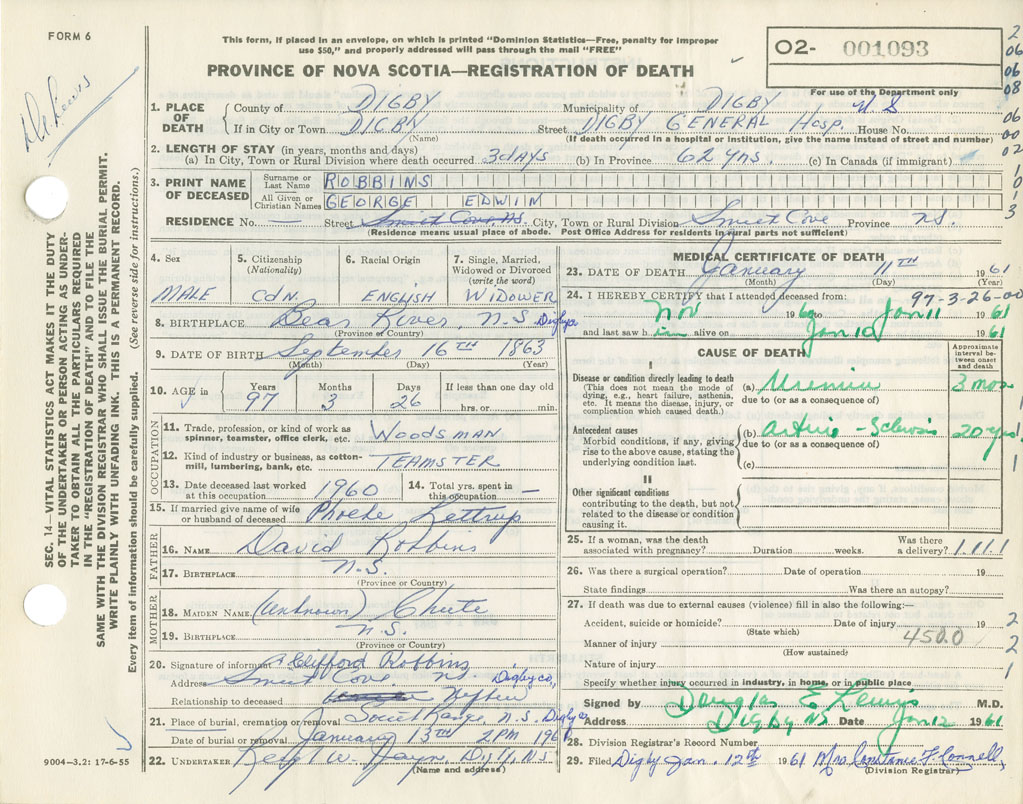 FORM 6
This form, if placed in an envelope, on which is printed "Dominion Statistics—Free, penalty for improper
use $50," and properly addressed will pass through the mail "FREE"
PROVINCE OF NOVA SCOTIA—REGISTRATION OF DEATH
O2- 001093
For use of the Department only
2
06
06
08
06
00
02
1
0
1
3
D E Lewis
SEC. 14 — VITAL STATISTICS ACT MAKES IT THE DUTY
OF THE UNDERTAKER OR PERSON ACTING AS UNDER-
TAKER TO OBTAIN ALL THE PARTICULARS REQUIRED
IN THE "REGISTRATION OF DEATH" AND TO FILE THE
SAME WITH THE DIVISION REGISTRAR WHO SHALL ISSUE THE BURIAL PERMIT.
WRITE PLAINLY WITH UNFADING INK. THIS IS A PERMANENT RECORD.
Every item of information should be carefully supplied. (See reverse side for instructions.)
1. PLACE OF DEATH
County of DIGBY Municipality of DIGBY
If in City or Town DIGBY Street DIGBY GENERAL Hosp. House No.
(Name) (If death occurred in a hospital or Institution, give the name instead of street and number)
2. LENGTH OF STAY (in years, months and days)
(a) In City, Town or Rural Division where death occurred 3 days (b) In Province 62 yrs. (c) In Canada (if immigrant)
3. PRINT NAME OF DECEASED
Surname or Last Name ROBBINS
All Given or Christian Names GEORGE EDWIN
RESIDENCE No. — Street Smith Cove N.S. City, Town or Rural Division Smith Cove Province N.S.
(Residence means usual place of abode. Post Office Address for residents in rural parts not sufficient)
4. Sex
MALE
5. Citizenship
(Nationality)
CDN.
6. Racial Origin
ENGLISH
7. Single, Married,
Widowed or Divorced
(write the word)
WIDOWER
8. BIRTHPLACE Bear River, N.S. Digby Co
(Province or Country)
9. DATE OF BIRTH September 16TH 1863
(Month) (Day) (Year)
10. AGE
Years Months Days If less than one day old
97 3 26 hrs. or min.
OCCUPATION
11. Trade, profession, or kind of work as
spinner, teamster, office clerk, etc. WOODSMAN
12. Kind of industry or business, as cotton-
mill, lumbering, bank, etc. TEAMSTER
13. Date deceased last worked
at this occupation 1960
14. Total yrs. spent in
this occupation —
15. If married give name of wife
or husband of deceased Phoebe
FATHER
16. NAME David Robbins
17. BIRTHPLACE N.S.
(Province or Country)
MOTHER
18. MAIDEN NAME (Unknown) Chute
19. BIRTHPLACE N.S.
(Province or Country)
20. Signature of informant Clifford Robbins
Address Smith Cove N.S. Digby Co,
Relationship to deceased Nephew
21. Place of burial, cremation or removal N.S. Digby Co
Date of burial or removal January 13TH 2PM 1961
22. UNDERTAKER W. Digby, N.S.
(Name and address)
9004—3.2: 17-6-55
MEDICAL CERTIFICATE OF DEATH
23. DATE OF DEATH January 11TH 1961
(Month) (Day) (Year)
97-3-26-00
24. I HEREBY CERTIFY that I attended deceased from:
Nov 1960 to Jan 11 1961
and last saw him alive on Jan 10 1961
CAUSE OF DEATH
Approximate
interval be-
tween onset
and death
I
Disease or condition directly leading to death
(This does not mean the mode of
dying, e.g., heart failure, asthenia,
etc. It means the disease, injury, or
complication which caused death.)
(a) Uremia 3 mos
due to (or as a consequence of)
Antecedent causes
Morbid conditions, if any, giving
rise to the above cause, stating the
underlying condition last.
(b) Arterio-Sclerosis 20 yrs
due to (or as a consequence of)
(c)
1
1
II
Other significant conditions
contributing to the death, but not
related to the disease or condition
causing it.
25. If a woman, was the death
associated with pregnancy? Duration weeks. Was there
a delivery? 1.11.1
26. Was there a surgical operation? Date of operation 19
State findings Was there an autopsy?
27. If death was due to external causes (violence) fill in also the following:—
Accident, suicide or homicide? Date of injury 19 2
(State which)
Manner of injury 450.0 2
(How sustained)
Nature of injury 1
Specify whether injury occurred in industry, in home, or in public place
Signed by Douglas E Lewis M.D.
Address DIGBY NS Date Jan 12 1961
28. Division Registrar's Record Number
29. Filed Digby Jan. 12th 1961 Mrs Constance F. Connell,
(Division Registrar)